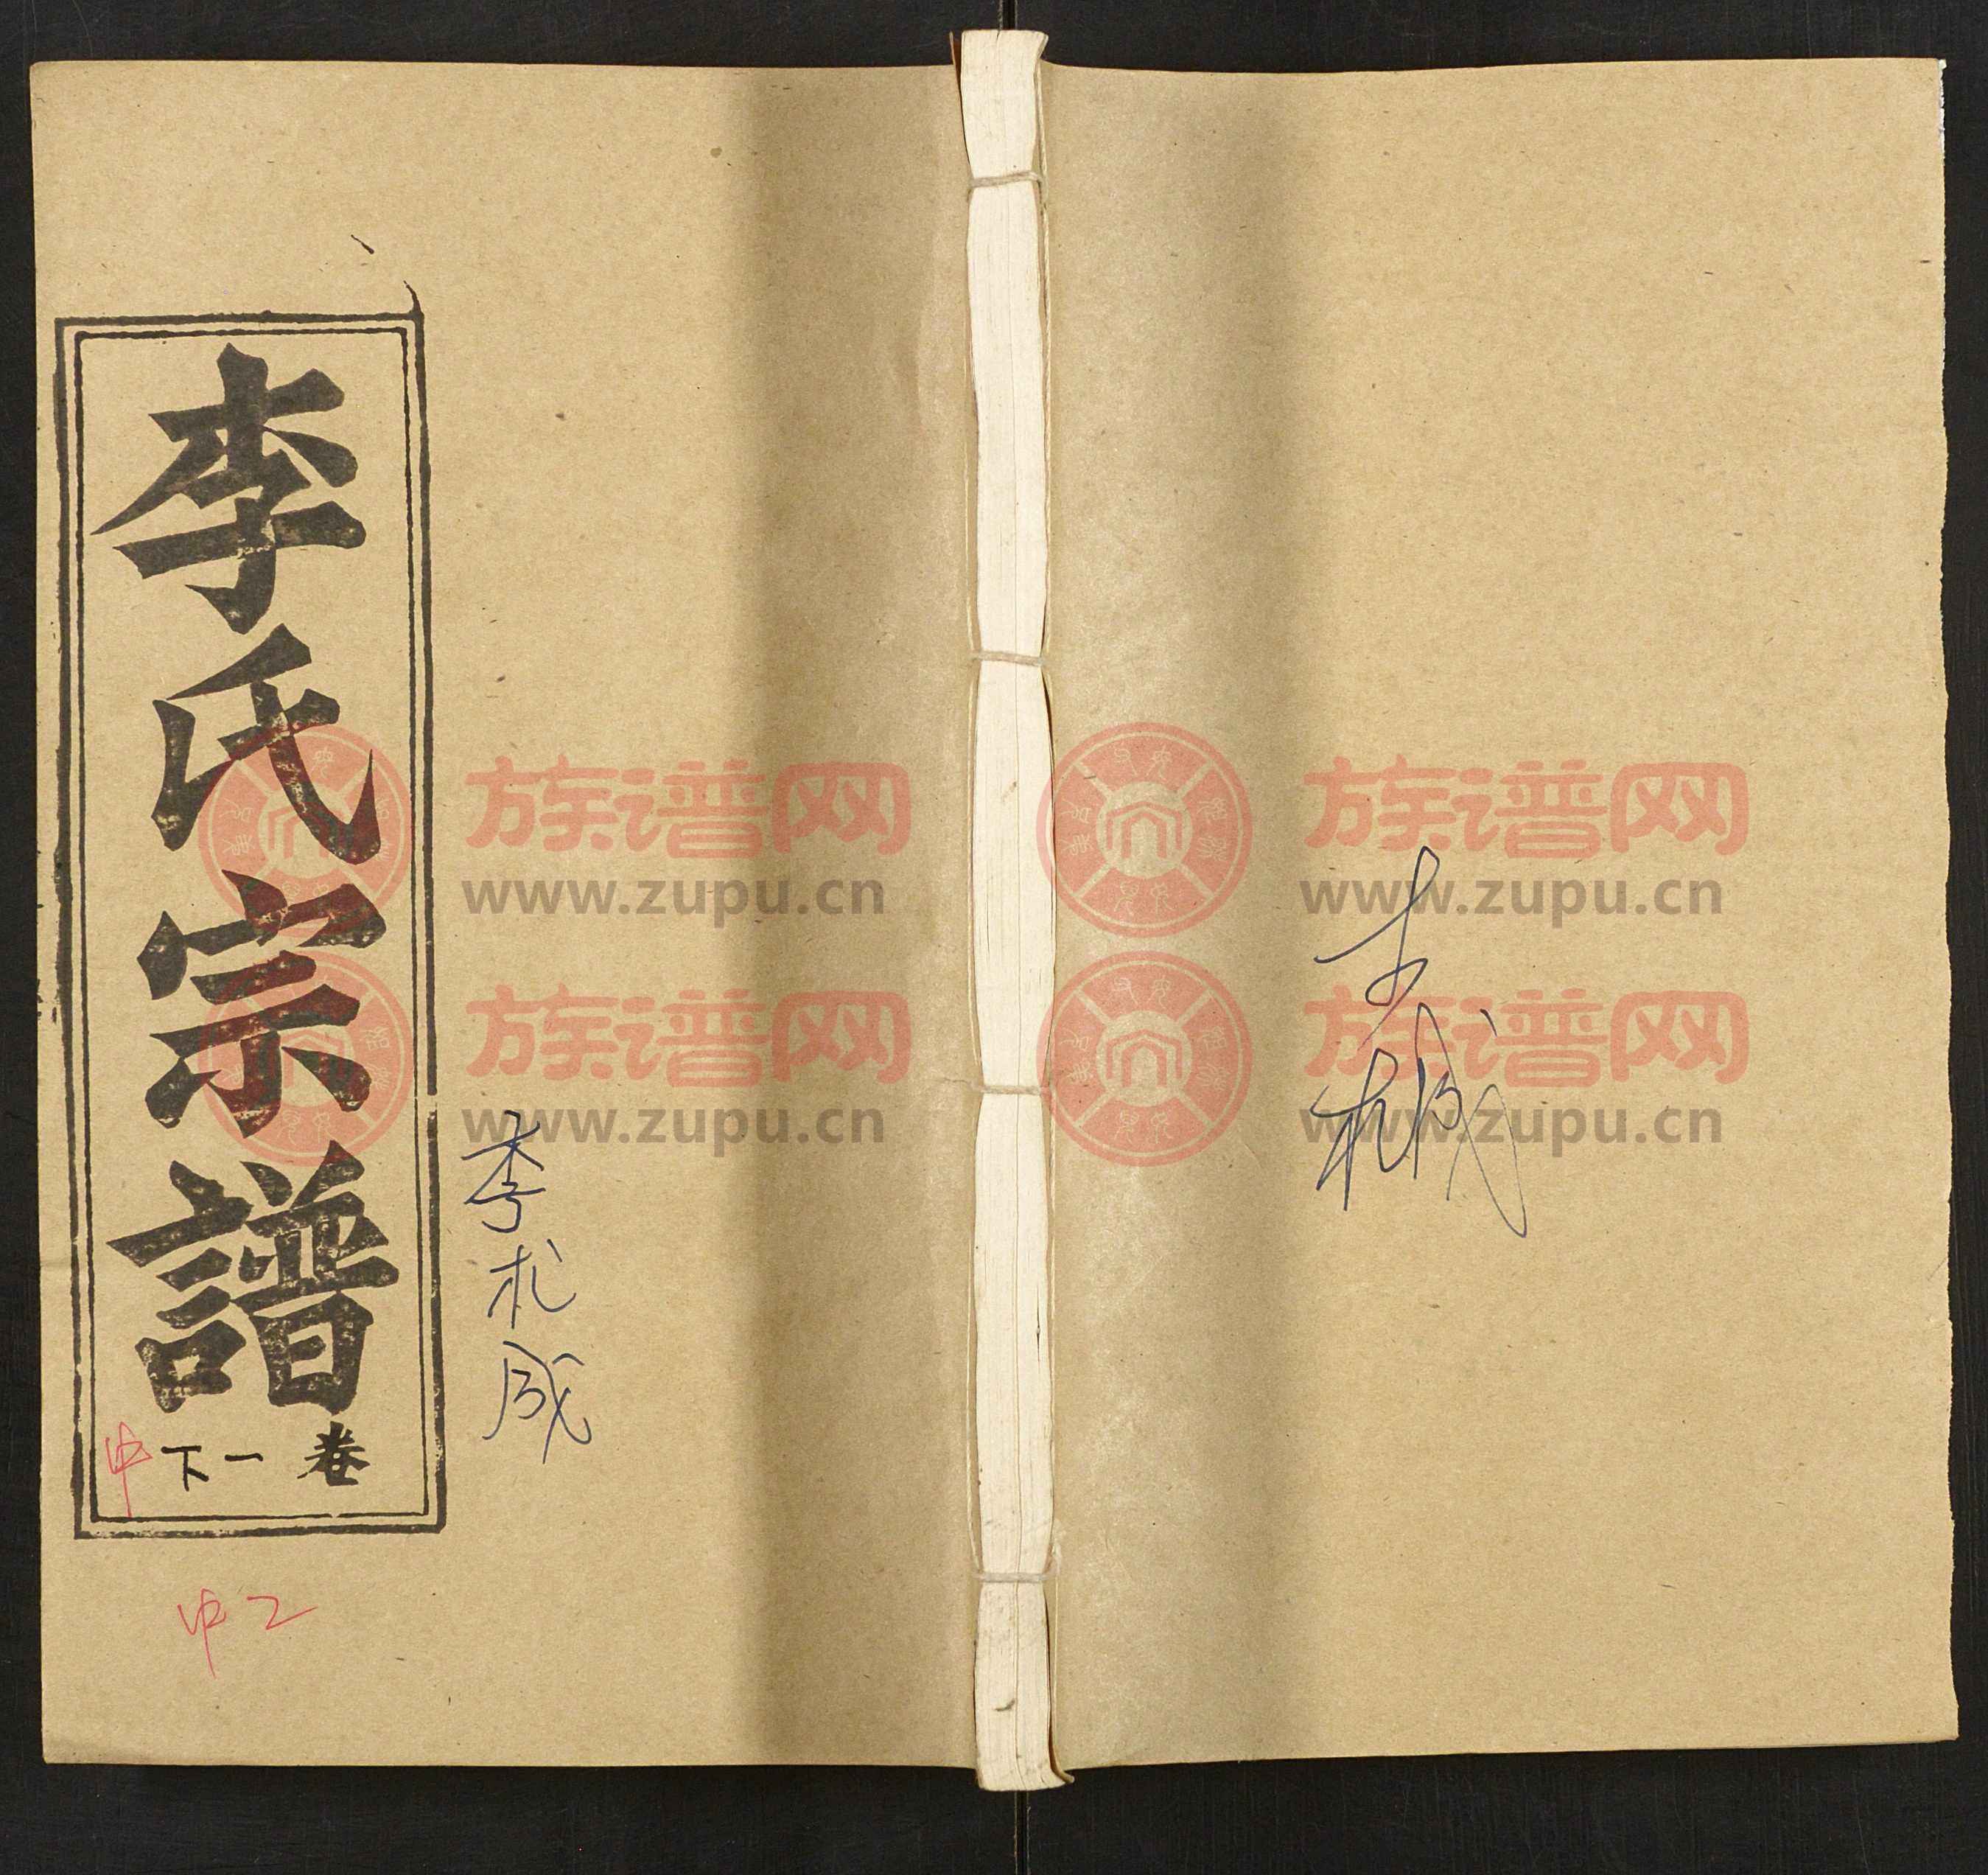 李氏宗譜
卷一下
中
中2
李札成
族谱网
www.zupu.cn
族谱网
www.zupu.cn
族谱网
www.zupu.cn
族谱网
www.zupu.cn